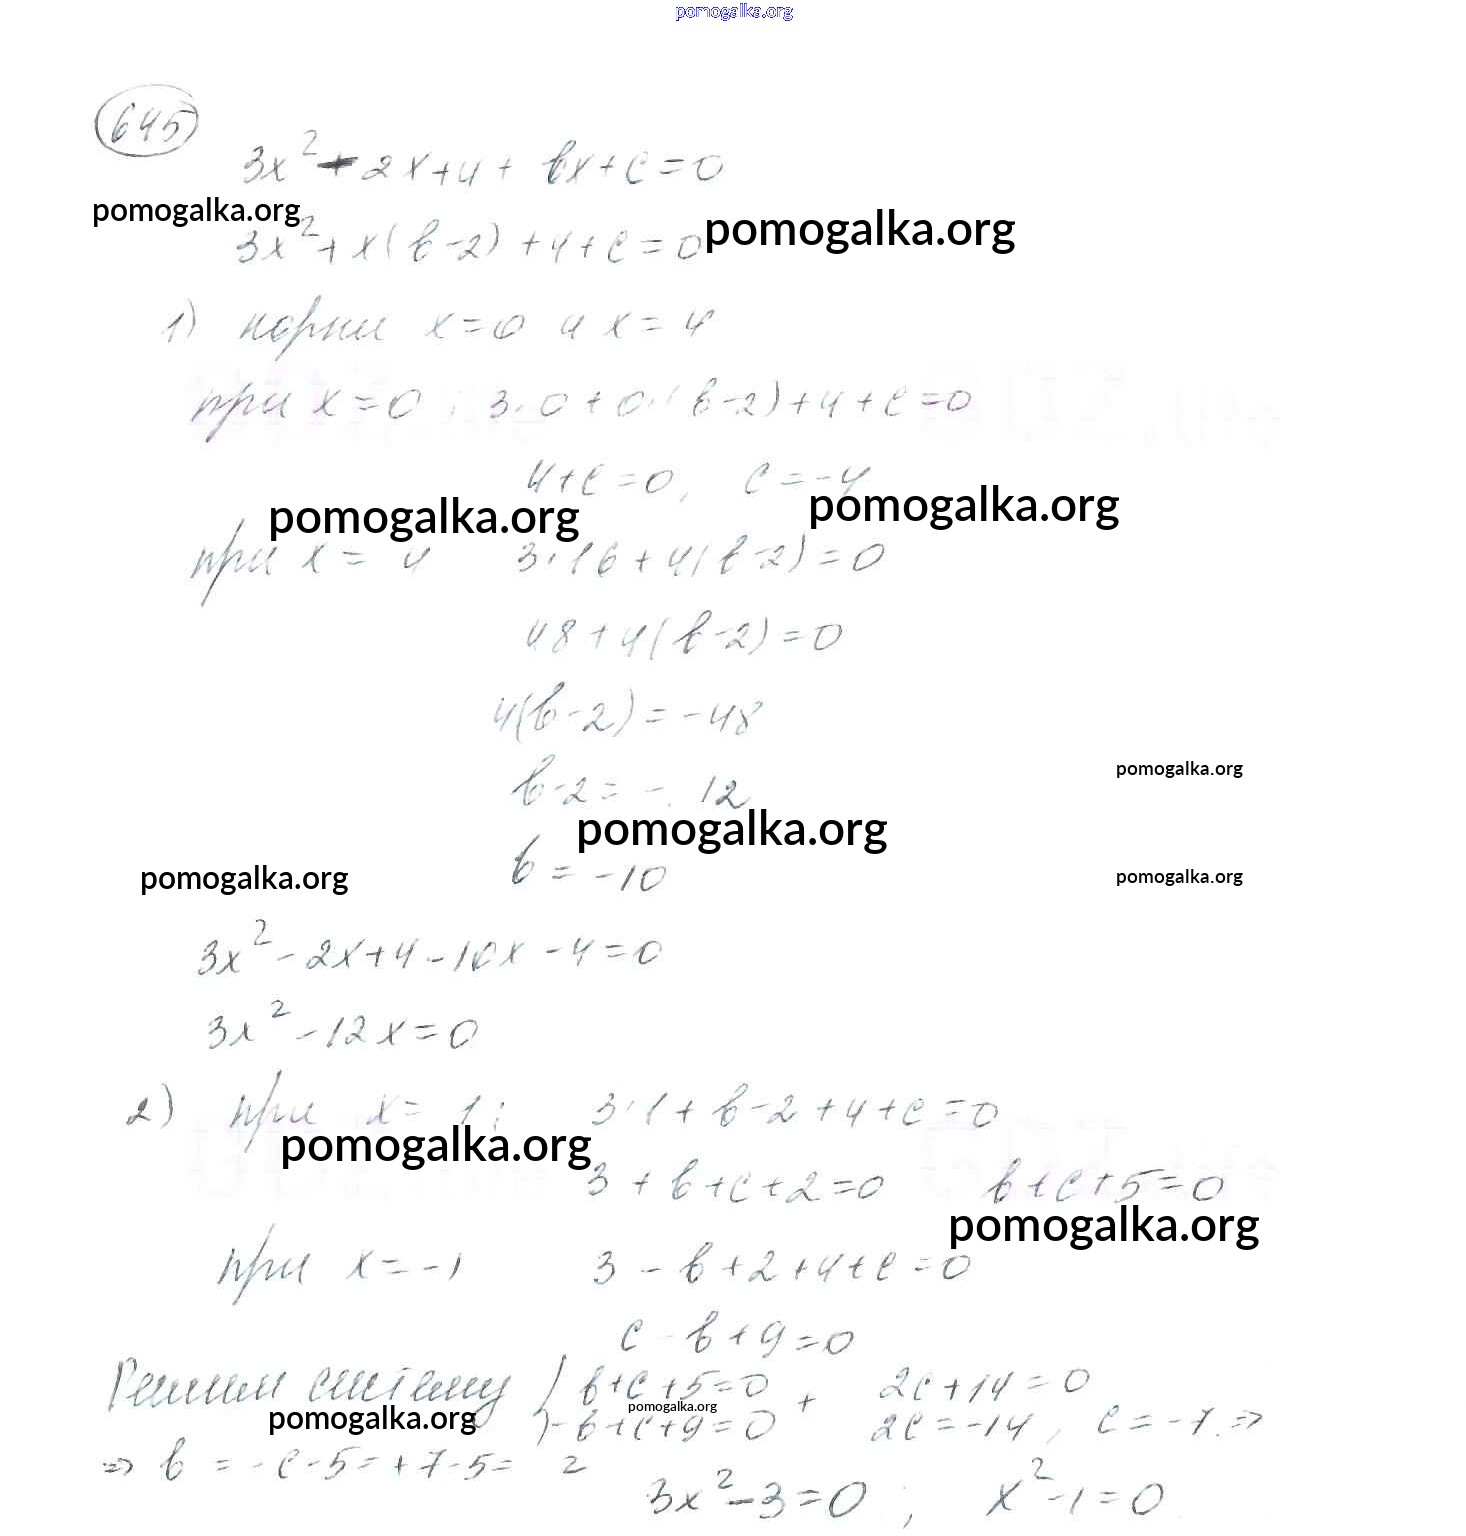 pomogalka.org
645
3x² - 2x + 4 + bx + c = 0
pomogalka.org
3x² + x(b-2) + 4 + c = 0
pomogalka.org
1) корни x = 0 и x = 4
при x = 0 : 3·0 + 0·(b-2) + 4 + c = 0
4 + c = 0, c = -4
pomogalka.org pomogalka.org
при x = 4 3·16 + 4(b-2) = 0
48 + 4(b-2) = 0
4(b-2) = -48
pomogalka.org
b-2 = -12
pomogalka.org
b = -10
pomogalka.org pomogalka.org
3x² - 2x + 4 - 10x - 4 = 0
3x² - 12x = 0
2) при x = 1 : 3·1 + b - 2 + 4 + c = 0
pomogalka.org
3 + b + c + 2 = 0 b + c + 5 = 0
pomogalka.org
при x = -1 3 - b + 2 + 4 + c = 0
c - b + 9 = 0
Решим систему b + c + 5 = 0 + 2c + 14 = 0
pomogalka.org pomogalka.org
-b + c + 9 = 0 2c = -14, c = -7. =>
=> b = -c - 5 = +7 - 5 = 2
3x² - 3 = 0 ; x² - 1 = 0